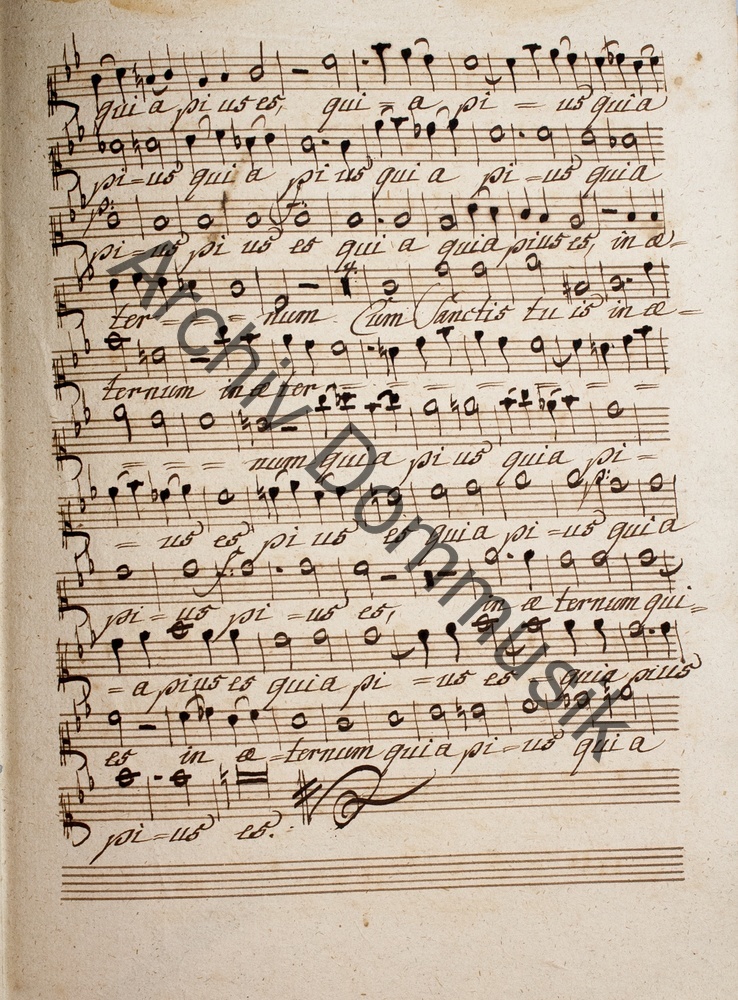 qui a pi us es, qui = a pi = us qui a
pi = us qui a pi us qui a pi = us qui a
p: f:
pi = us pi us es qui a qui a pi us es, in æ =
14.
ter = = = num Cum Sanctis tu is in æ =
ternum in æ ter = = = = = = =
= = = = num qui a pi us qui a pi =
p:
= us es pi us es qui a pi = us qui a
f:
pi = us pi = us es, in æ ternum qui =
= a pi us es qui a pi = us es = qui a pi us
es in æ = ternum qui a pi = us qui a
pi = us es.
Archiv Dommusik